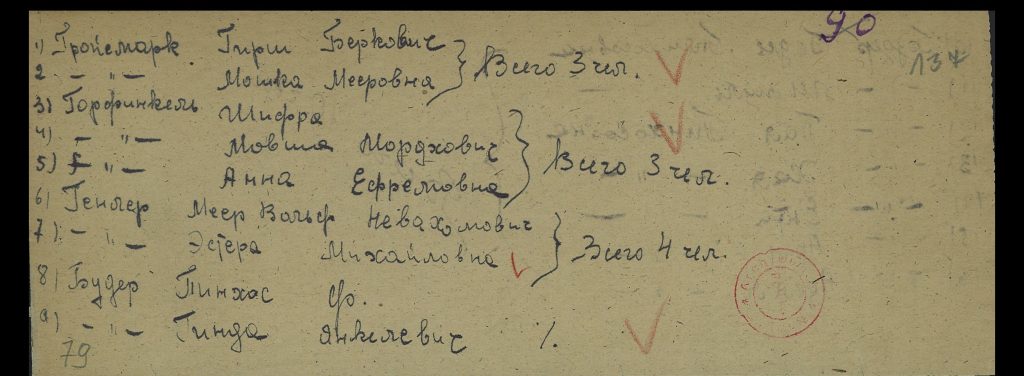 90
134
1) Гройсмарк Гирш Беркович
2 – „ – Мошка Мееровна } Всего 3 чел.
3) Горфинкель Шифра
4) – „ – Мовша Мордкович
5) – „ – Анна Ефремовна } Всего 3 чел.
6) Генлер Меер Вольф Невахомович
7) – „ – Эстера Михайловна } Всего 4 чел.
8) Будер Пинхас
9) – „ – Гинда Янкелевич %.
79